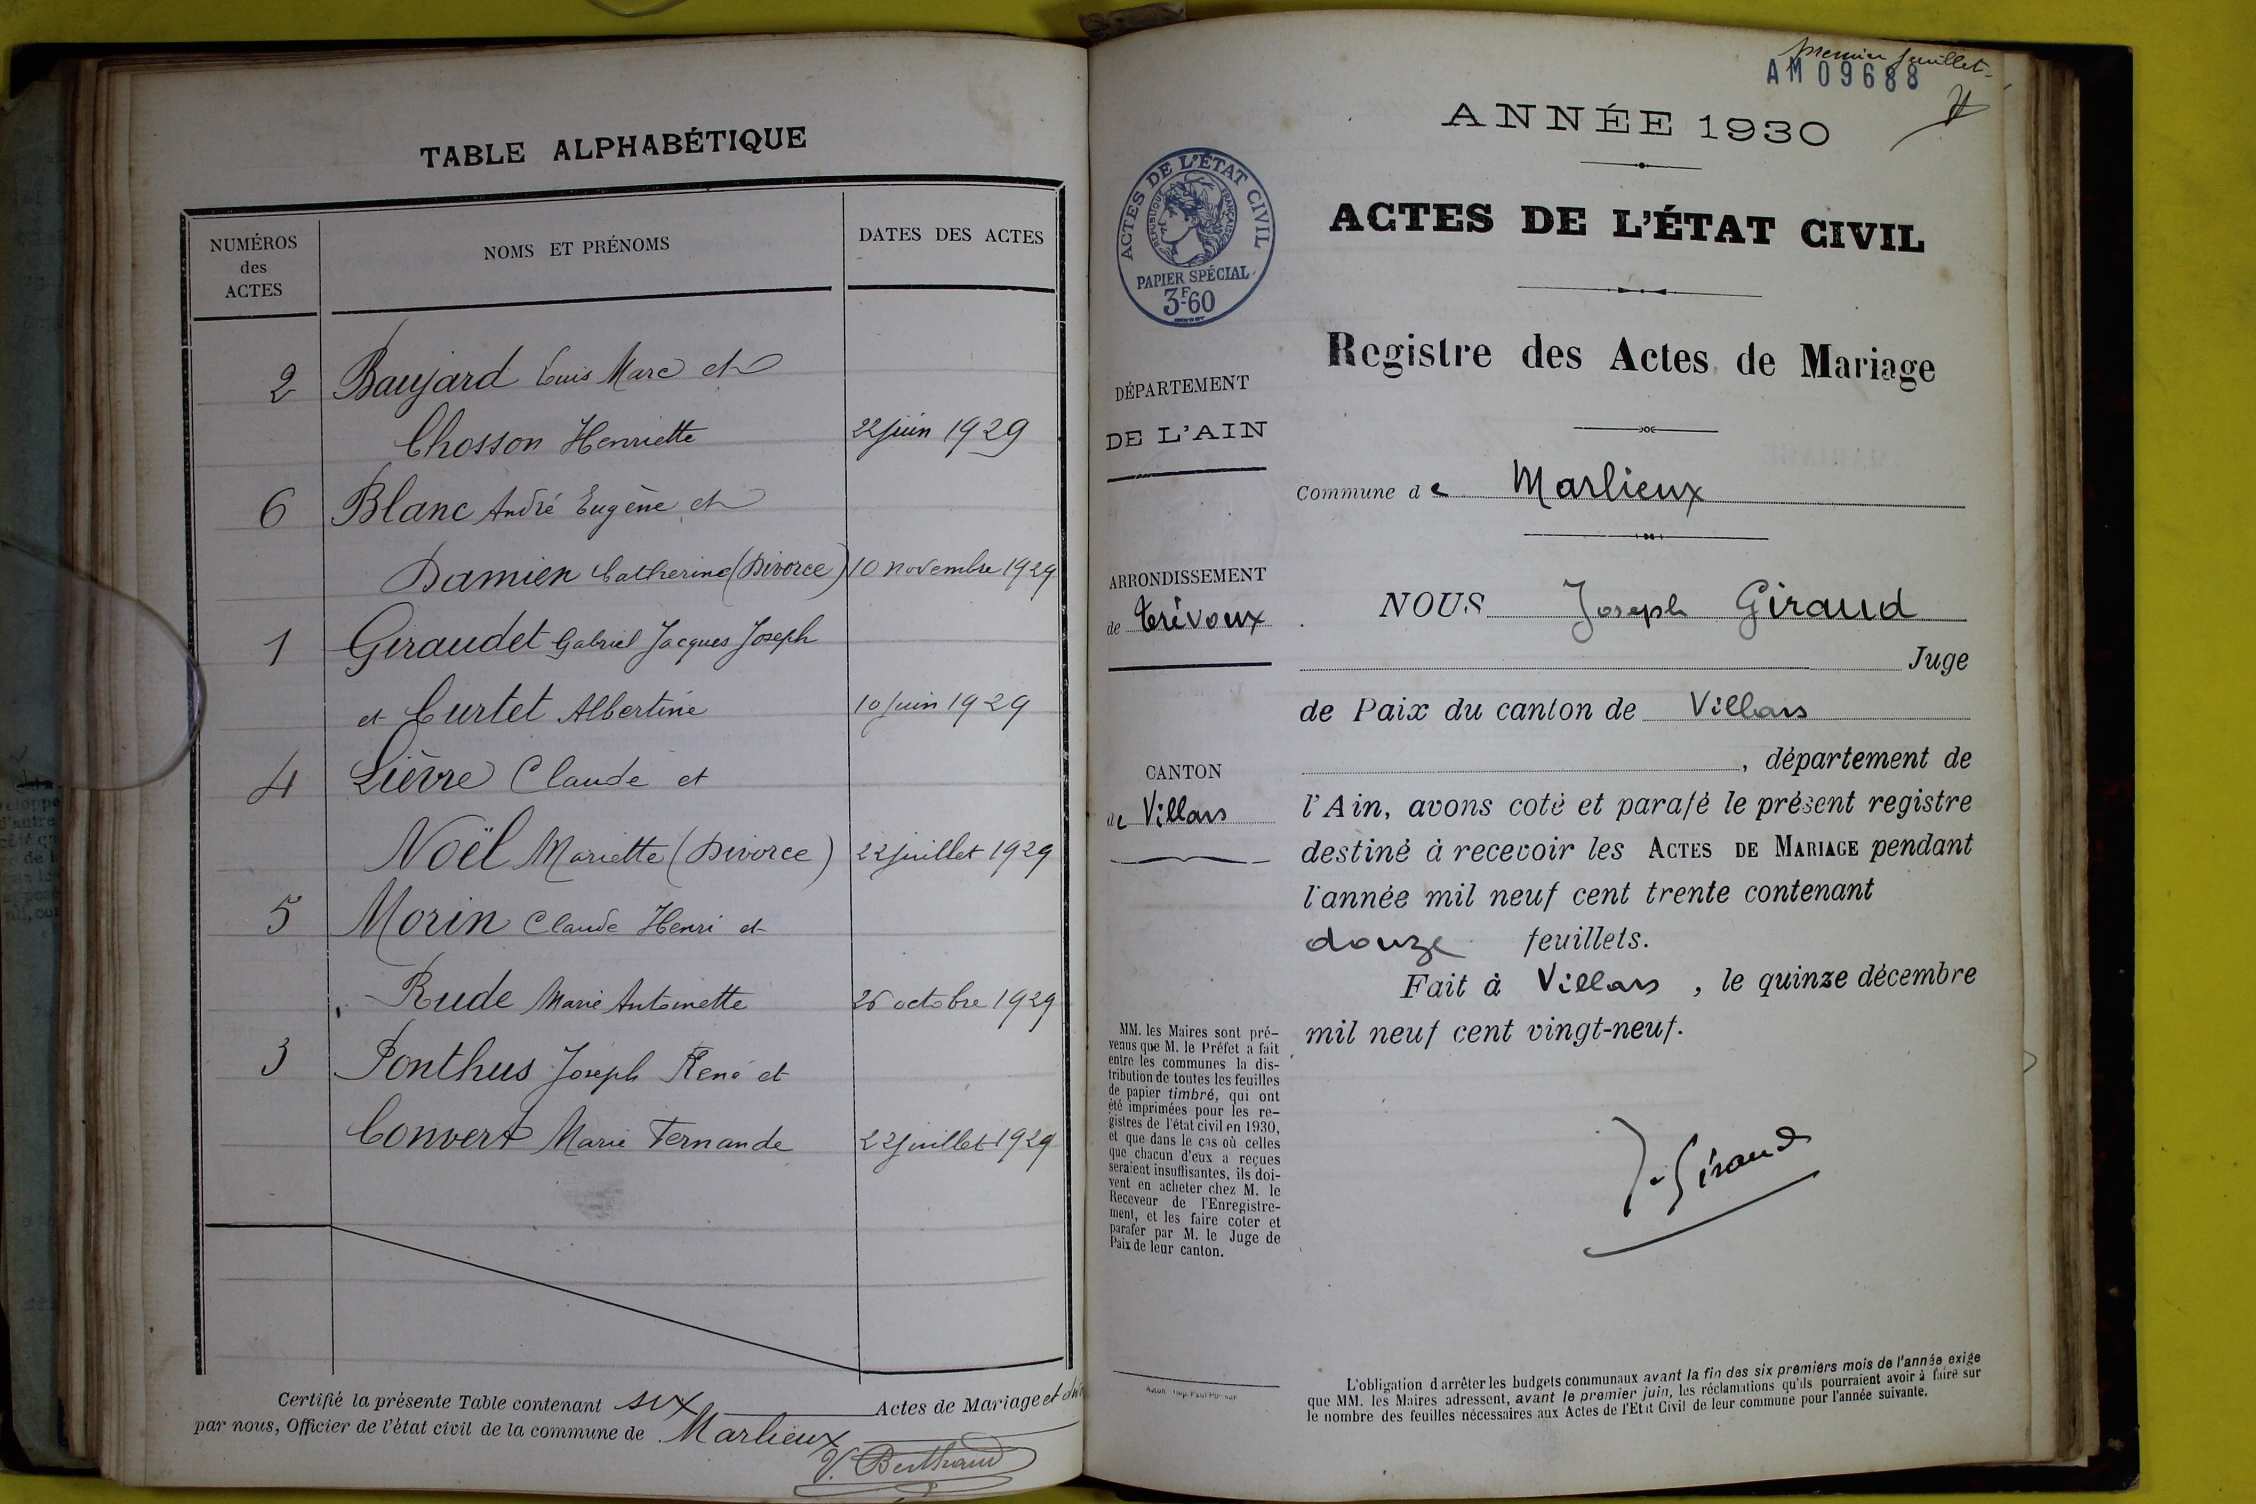 TABLE ALPHABÉTIQUE
NUMÉROS
des
ACTES
NOMS ET PRÉNOMS
DATES DES ACTES
2 Baujard Louis Marc et
Chosson Henriette 22 juin 1929
6 Blanc André Eugène et
Damien Catherine (Divorce) 10 novembre 1929
1 Giraudet Gabriel Jacques Joseph
et Curtet Albertine 10 juin 1929
4 Lièvre Claude et
Noël Mariette (Divorce) 22 juillet 1929
5 Morin Claude Henri et
Rude Marie Antoinette 26 octobre 1929
3 Ponthus Joseph René et
Convert Marie Fernande 22 juillet 1929
Certifié la présente Table contenant six Actes de Mariage et
par nous, Officier de l'état civil de la commune de Marlieux
V. Berthaud
premier feuillet
AM 09688
ANNÉE 1930
ACTES DE L'ÉTAT CIVIL
RÉPUBLIQUE FRANÇAISE
PAPIER SPÉCIAL
3F.60
ACTES DE L'ÉTAT CIVIL
Registre des Actes de Mariage
DÉPARTEMENT
DE L'AIN
Commune de Marlieux
ARRONDISSEMENT
de Trévoux
CANTON
de Villars
NOUS Joseph Giraud
Juge
de Paix du canton de Villars
, département de
l'Ain, avons coté et parafé le présent registre
destiné à recevoir les ACTES DE MARIAGE pendant
l'année mil neuf cent trente contenant
douze feuillets.
Fait à Villars, le quinze décembre
mil neuf cent vingt-neuf.
J. Giraud
MM. les Maires sont pré-
venus que M. le Préfet a fait
entre les communes la dis-
tribution de toutes les feuilles
de papier timbré, qui ont
été imprimées pour les re-
gistres de l'état civil en 1930,
et que dans le cas où celles
que chacun d'eux a reçues
seraient insuffisantes, ils doi-
vent en acheter chez M. le
Receveur de l'Enregistre-
ment, et les faire coter et
parafer par M. le Juge de
Paix de leur canton.
L'obligation d'arrêter les budgets communaux avant la fin des six premiers mois de l'année exige
que MM. les Maires adressent, avant le premier juin, les réclamations qu'ils pourraient avoir à faire sur
le nombre des feuilles nécessaires aux Actes de l'Etat Civil de leur commune pour l'année suivante.